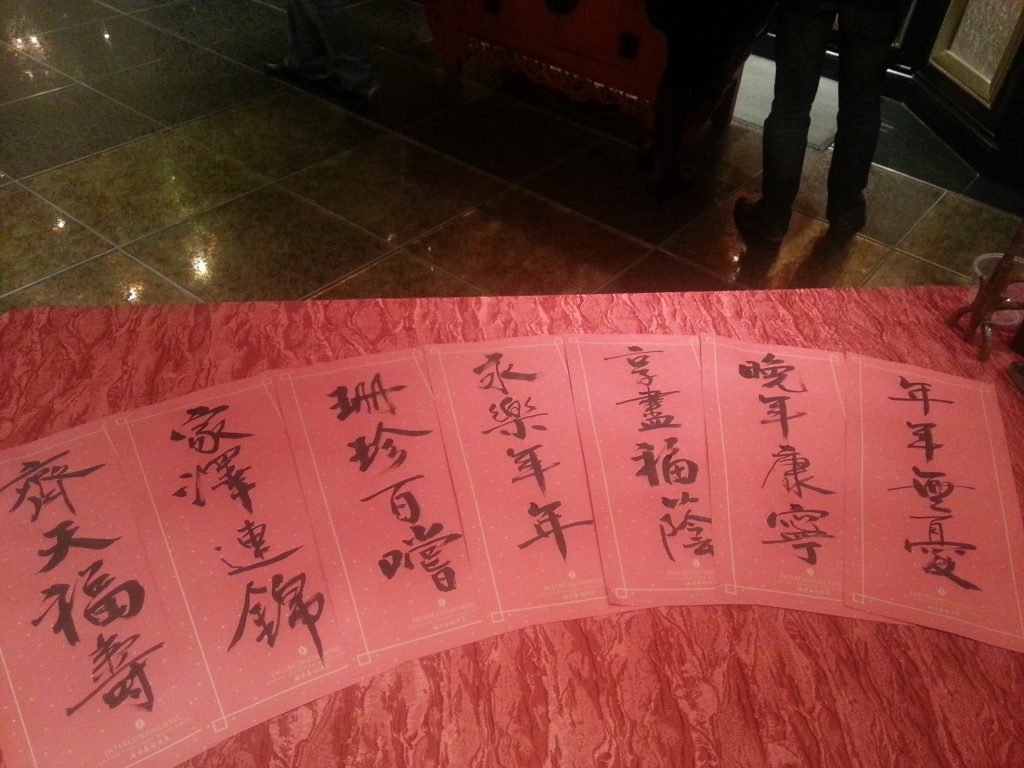 齊天福壽
INTERCONTINENTAL
家澤連錦
INTERCONTINENTAL
珊珍百嚐
INTERCONTINENTAL
永樂年年
INTERCONTINENTAL
享盡福蔭
INTERCONTINENTAL
晚年康寧
INTERCONTINENTAL
年年無憂
INTERCONTINENTAL